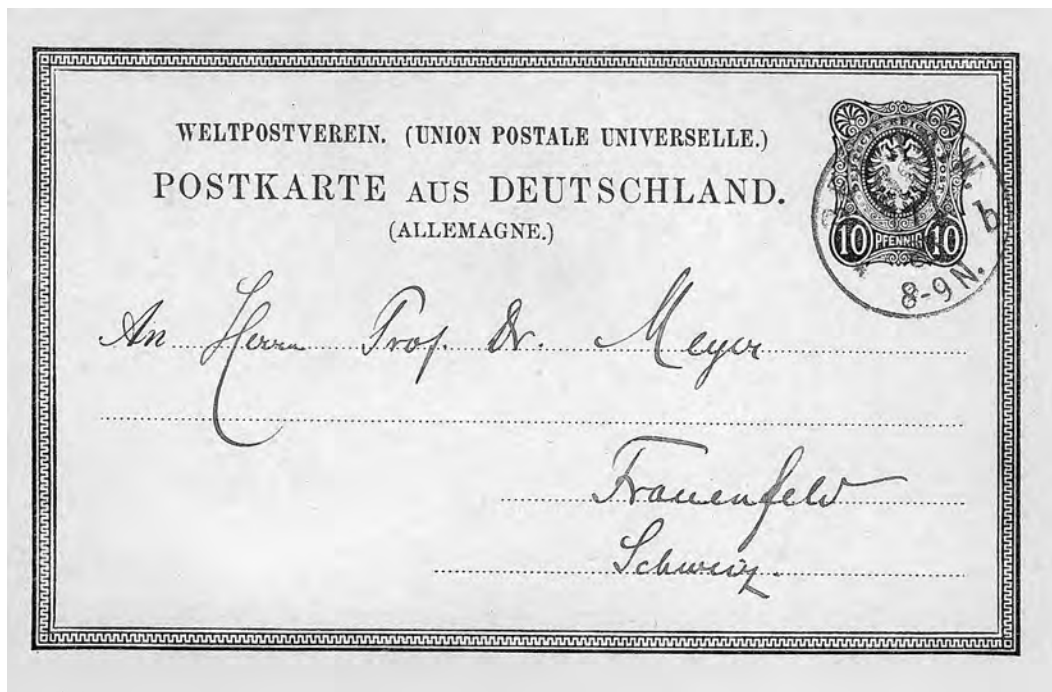 WELTPOSTVEREIN. (UNION POSTALE UNIVERSELLE.)
POSTKARTE AUS DEUTSCHLAND.
(ALLEMAGNE.)
10 PFENNIG 10
W.
b
8-9 N.
An Herrn Prof. Dr. Meyer
Frauenfeld
Schweiz.